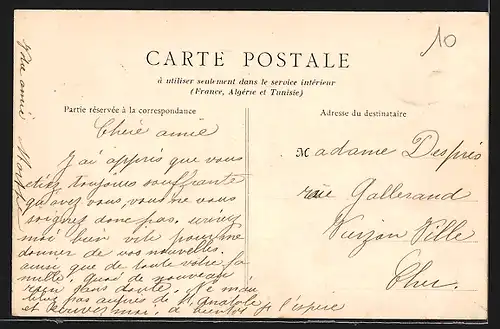 10
CARTE POSTALE
à utiliser seulement dans le service intérieur
(France, Algérie et Tunisie)
Partie réservée à la correspondance
Adresse du destinataire
Chère amie
J'ai appris que vous
étiez toujours souffrante
qu'avez vous, vous ne vous
soignez donc pas, écrivez
moi bien vite pour me
donner de vos nouvelles
ainsi que de toute votre fa
mille, quoi de nouveau
rien sans doute. Ne m'en
pas auprès de Mr Anatole
et à bientôt je l'espère
Votre amie
Madame Després
rue Gallerand
Vierzon Ville
Cher